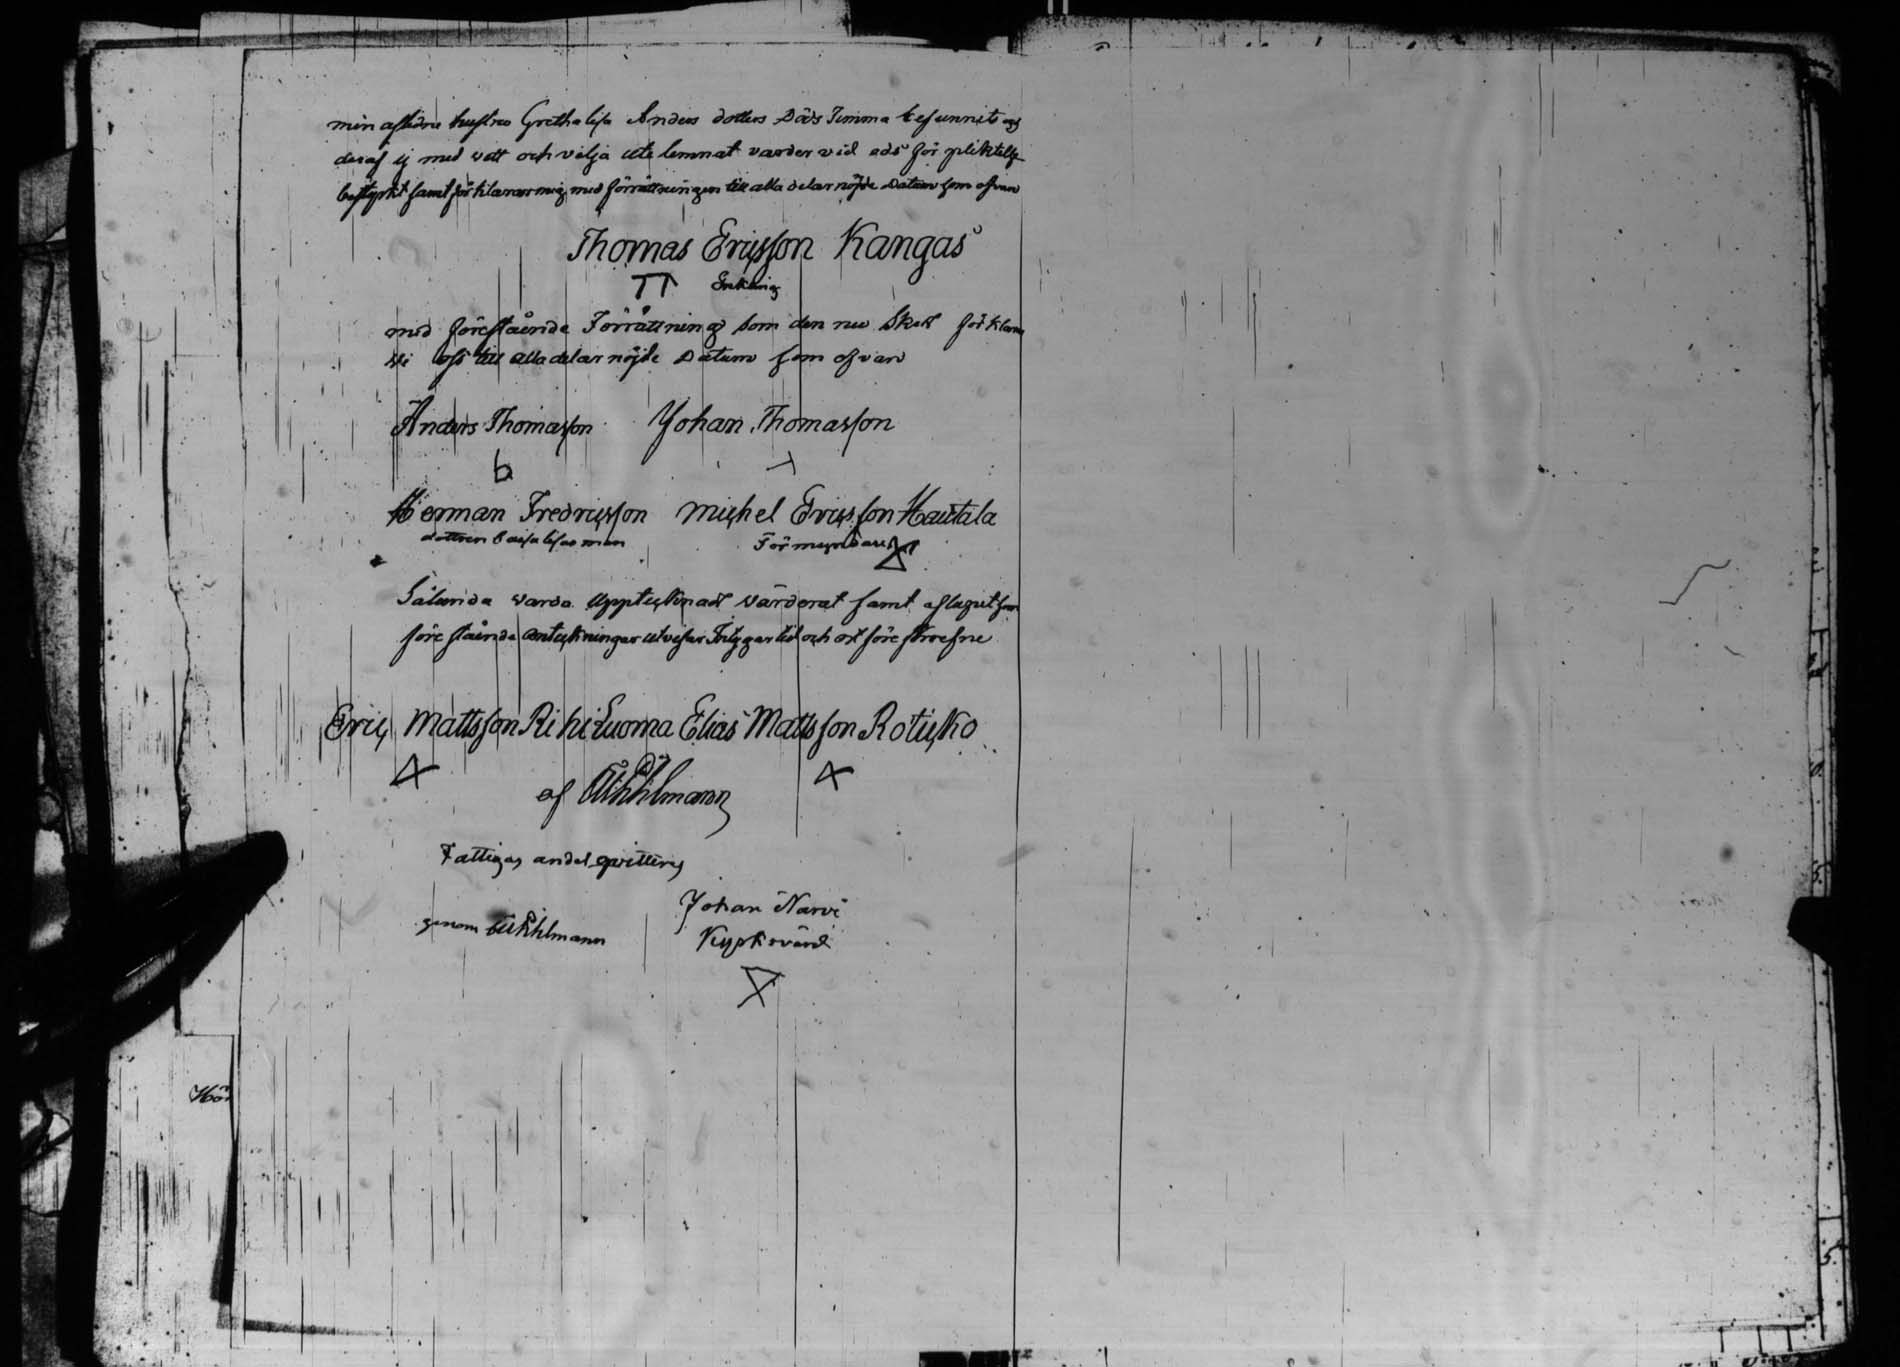 min aflidne hustru Gretha lisa Anders dotters Döds Timma befunnits og
deraf ej med vett och vilja ute lemnat varder vid eds för pliktelse
bestyrkt samt förklarar mig med förrättningen till alla delar nöjde Datum som ofvan
Thomas Ericsson Kangas
Enkling
med föreståénde Förrättning som den nu Skett förklara
vi oss till alla delar nöjde Datum som ofvan
Anders Thomasson Johan Thomasson
Herman Fredricsson Michel Ericsson Hautala
dottren Caisa lisas man Förmyndare
Sålunda varda Upptecknadt värderat samt aflagit som
förestående anteckningar utvisar Intygar tid och ort föreskrefne
Eric Mattsson Rihiluoma Elias Mattsson Roticko
af
Fattigas andel qvitteras
Johan Narvi
genom
Kyrkovärd
Hör
5.